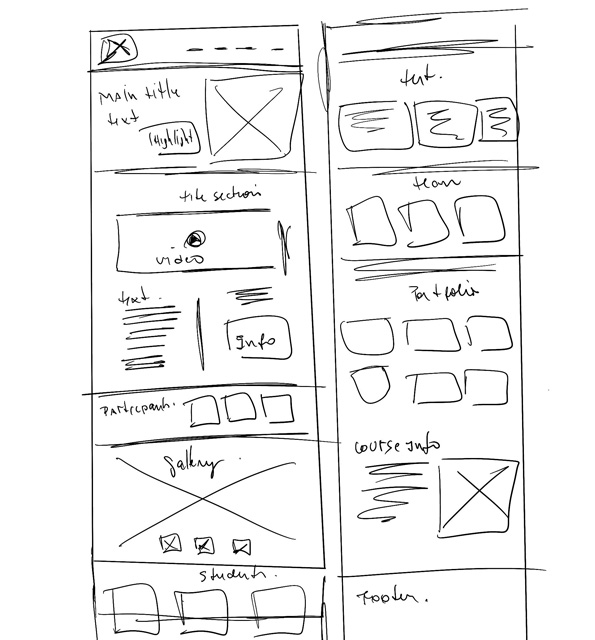 Main title
text
Highlight
title section
video
text.
Info
Participants.
gallery.
Students.
text.
team
Portfolio
course Info
Footer.